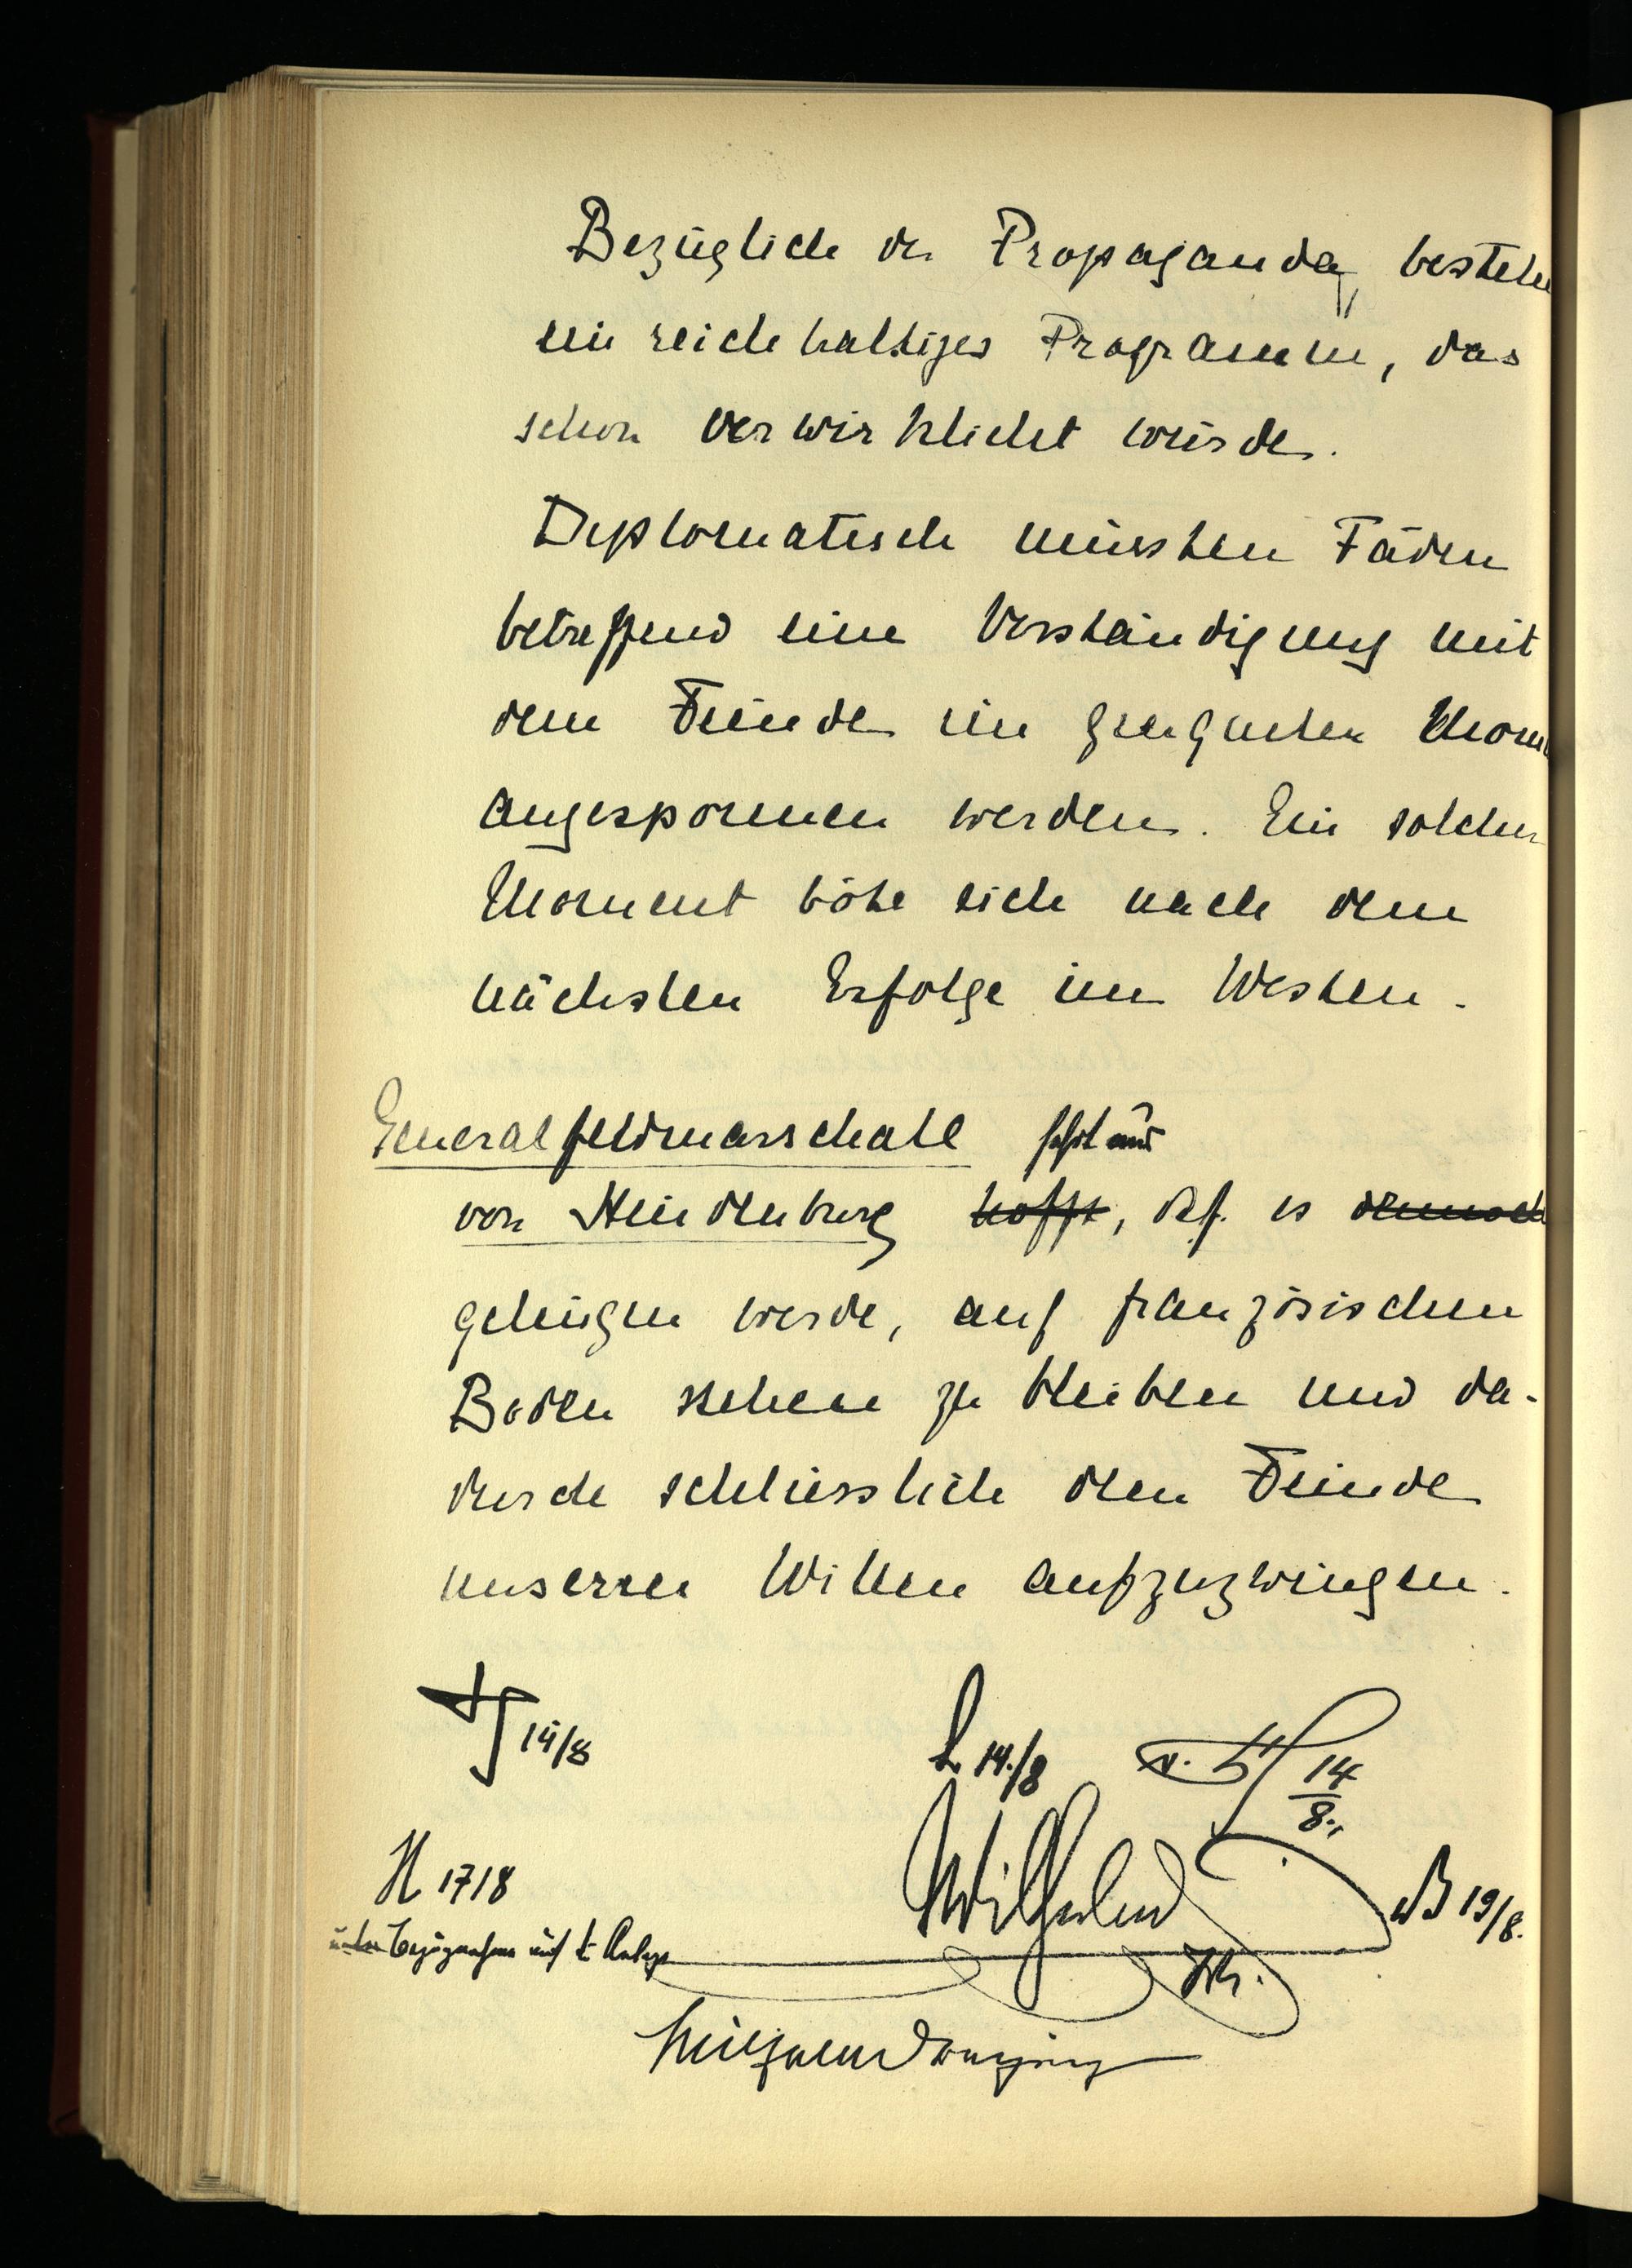 Bezüglich der Propaganda, bestehe
ein reichhaltiges Programm, das
schon verwirklicht würde.
Diplomatisch müssten Fäden
betreffend eine Verständigung mit
dem Feinde im geeigneten Mom
angesponnen werden. Ein solcher
Moment böte sich nach dem
nächsten Erfolge im Westen.
Generalfeldmarschall führt aus
von Hindenburg hofft, daß es dennoch
gelingen werde, auf französischem
Boden stehen zu bleiben und da-
durch schliesslich dem Feinde
unseren Willen aufzuzwingen.
14/8 L 14./8 v. H 14/8.
H 17/8 Wilhelm B 19/8.
unter Bezugnahme auf d. Anlage
Wilhelm Kronprinz